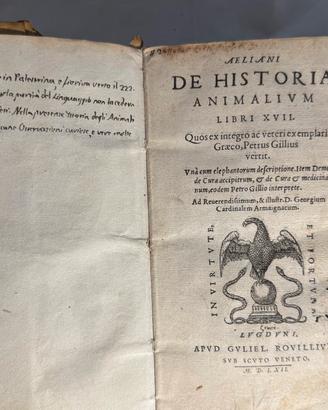 in Palestrina, e fioriva verso il 222.
Nella presente storia degli Animali
ÆLIANI
DE HISTORIA
ANIMALIVM
LIBRI XVII.
Quos ex integro ac veteri exemplari
Græco, Petrus Gillius
vertit.
Vnà cum elephantorum descriptione. Item Deme
de Cura accipitrum, & de Cura & medicina
num, eodem Petro Gillio interprete.
Ad Reverendissimum, & illustr. D. Georgium
Cardinalem Armaignacum.
IN VIRTVTE,
ET FORTVNA
LVGDVNI,
APVD GVLIEL. ROVILLIV
SVB SCVTO VENETO,
M. D. LXII.